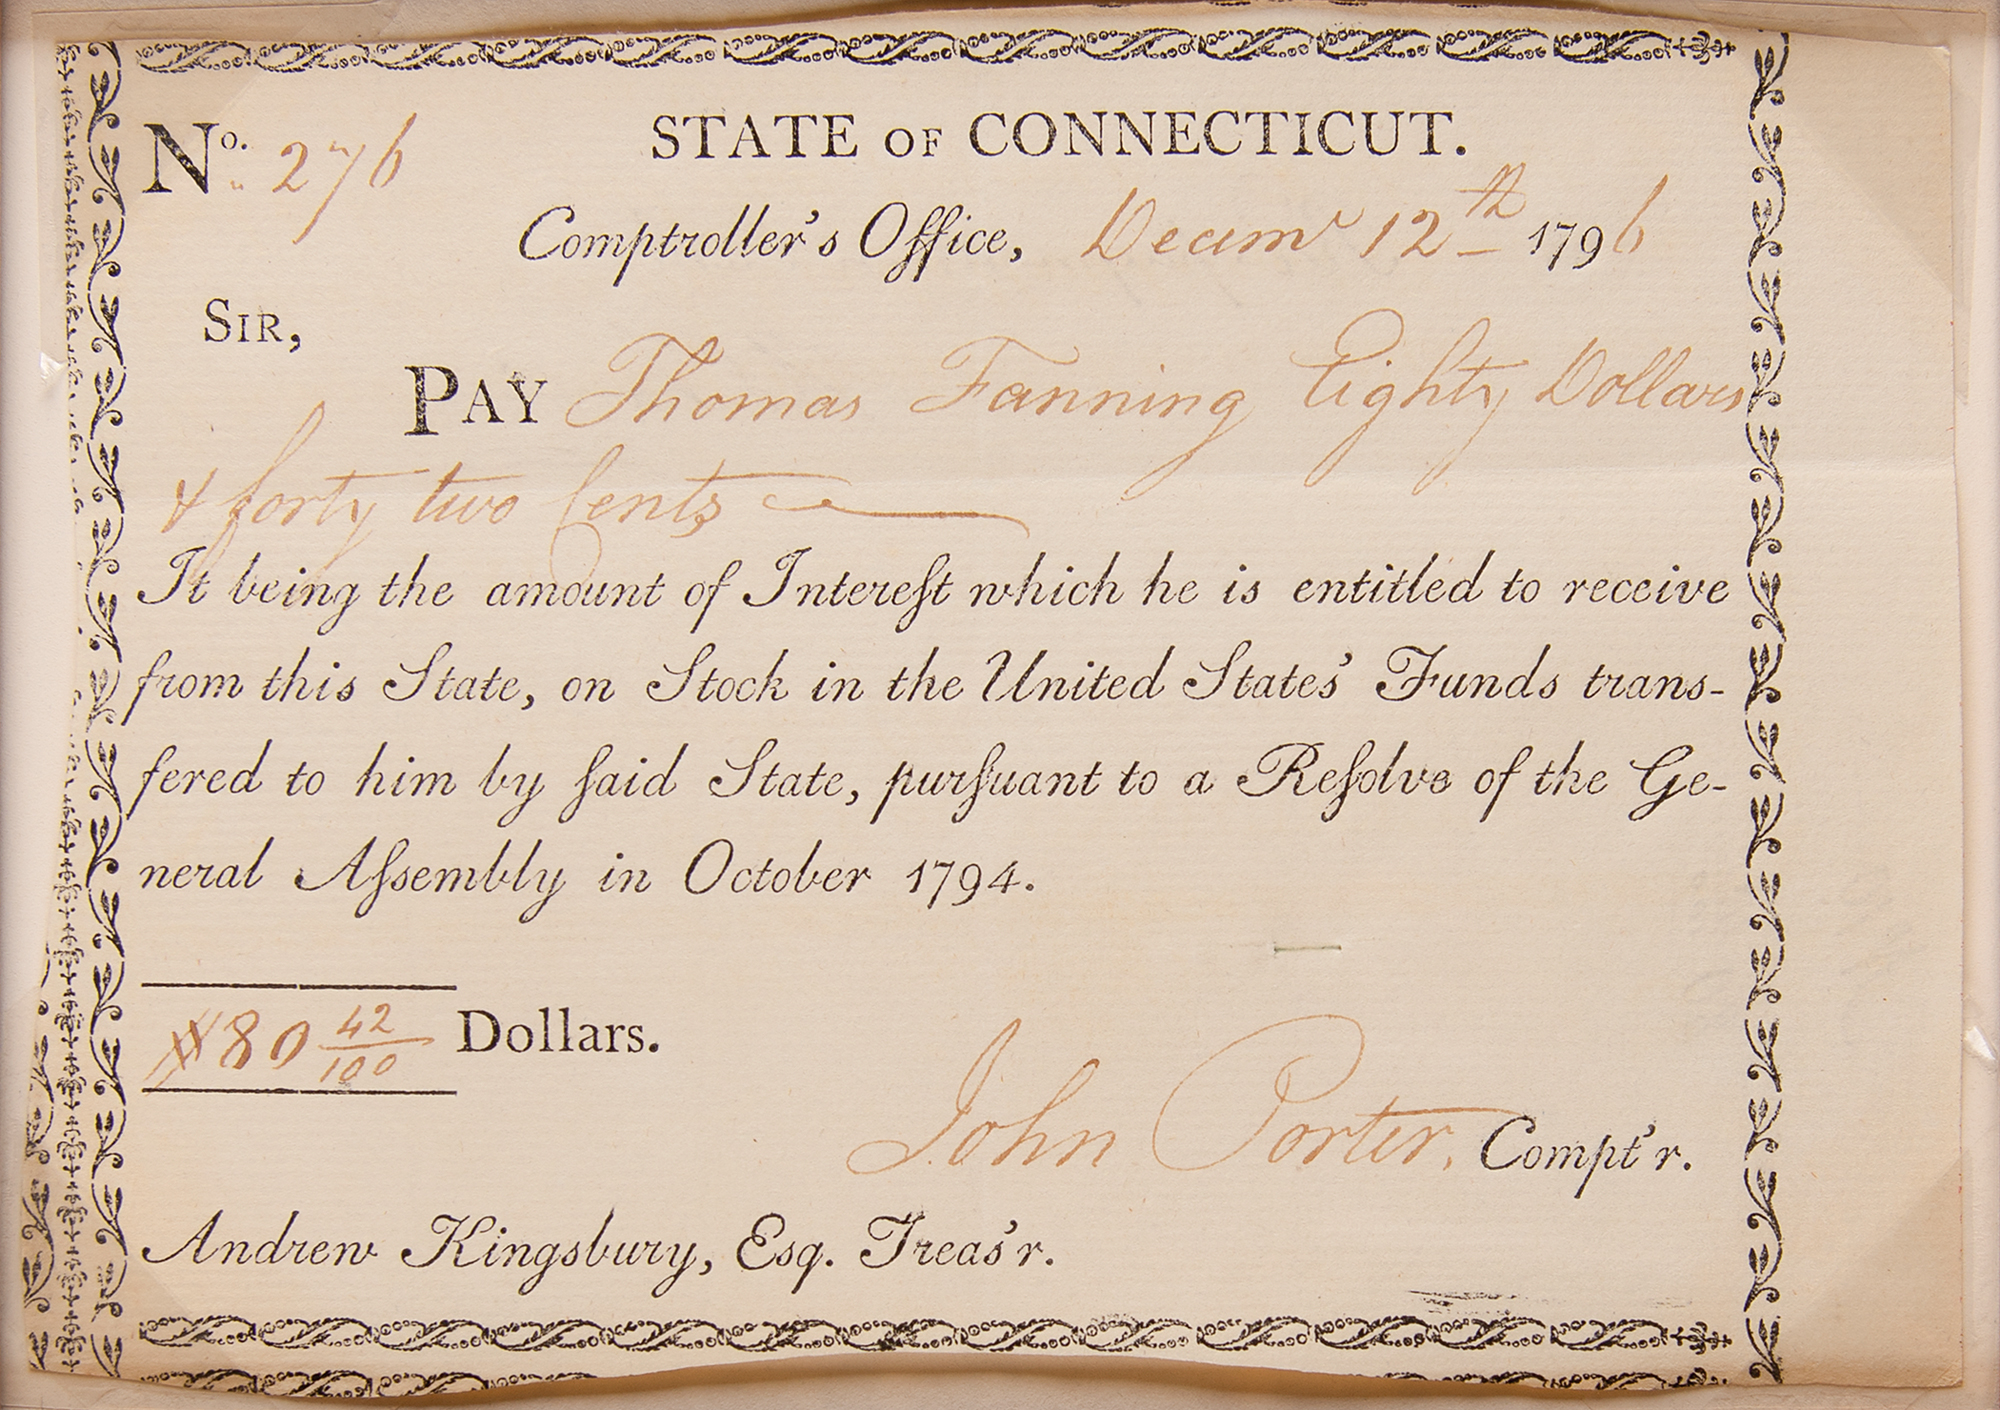 No. 276
STATE OF CONNECTICUT.
Comptroller's Office, Decemr 12th 1796
SIR,
PAY Thomas Fanning Eighty Dollars
& forty two Cents
It being the amount of Intereſt which he is entitled to receive
from this State, on Stock in the United States' Funds trans-
fered to him by ſaid State, purſuant to a Reſolve of the Ge-
neral Aſsembly in October 1794.
$80 42/100 Dollars.
John Porter, Compt'r.
Andrew Kingsbury, Esq. Treas'r.